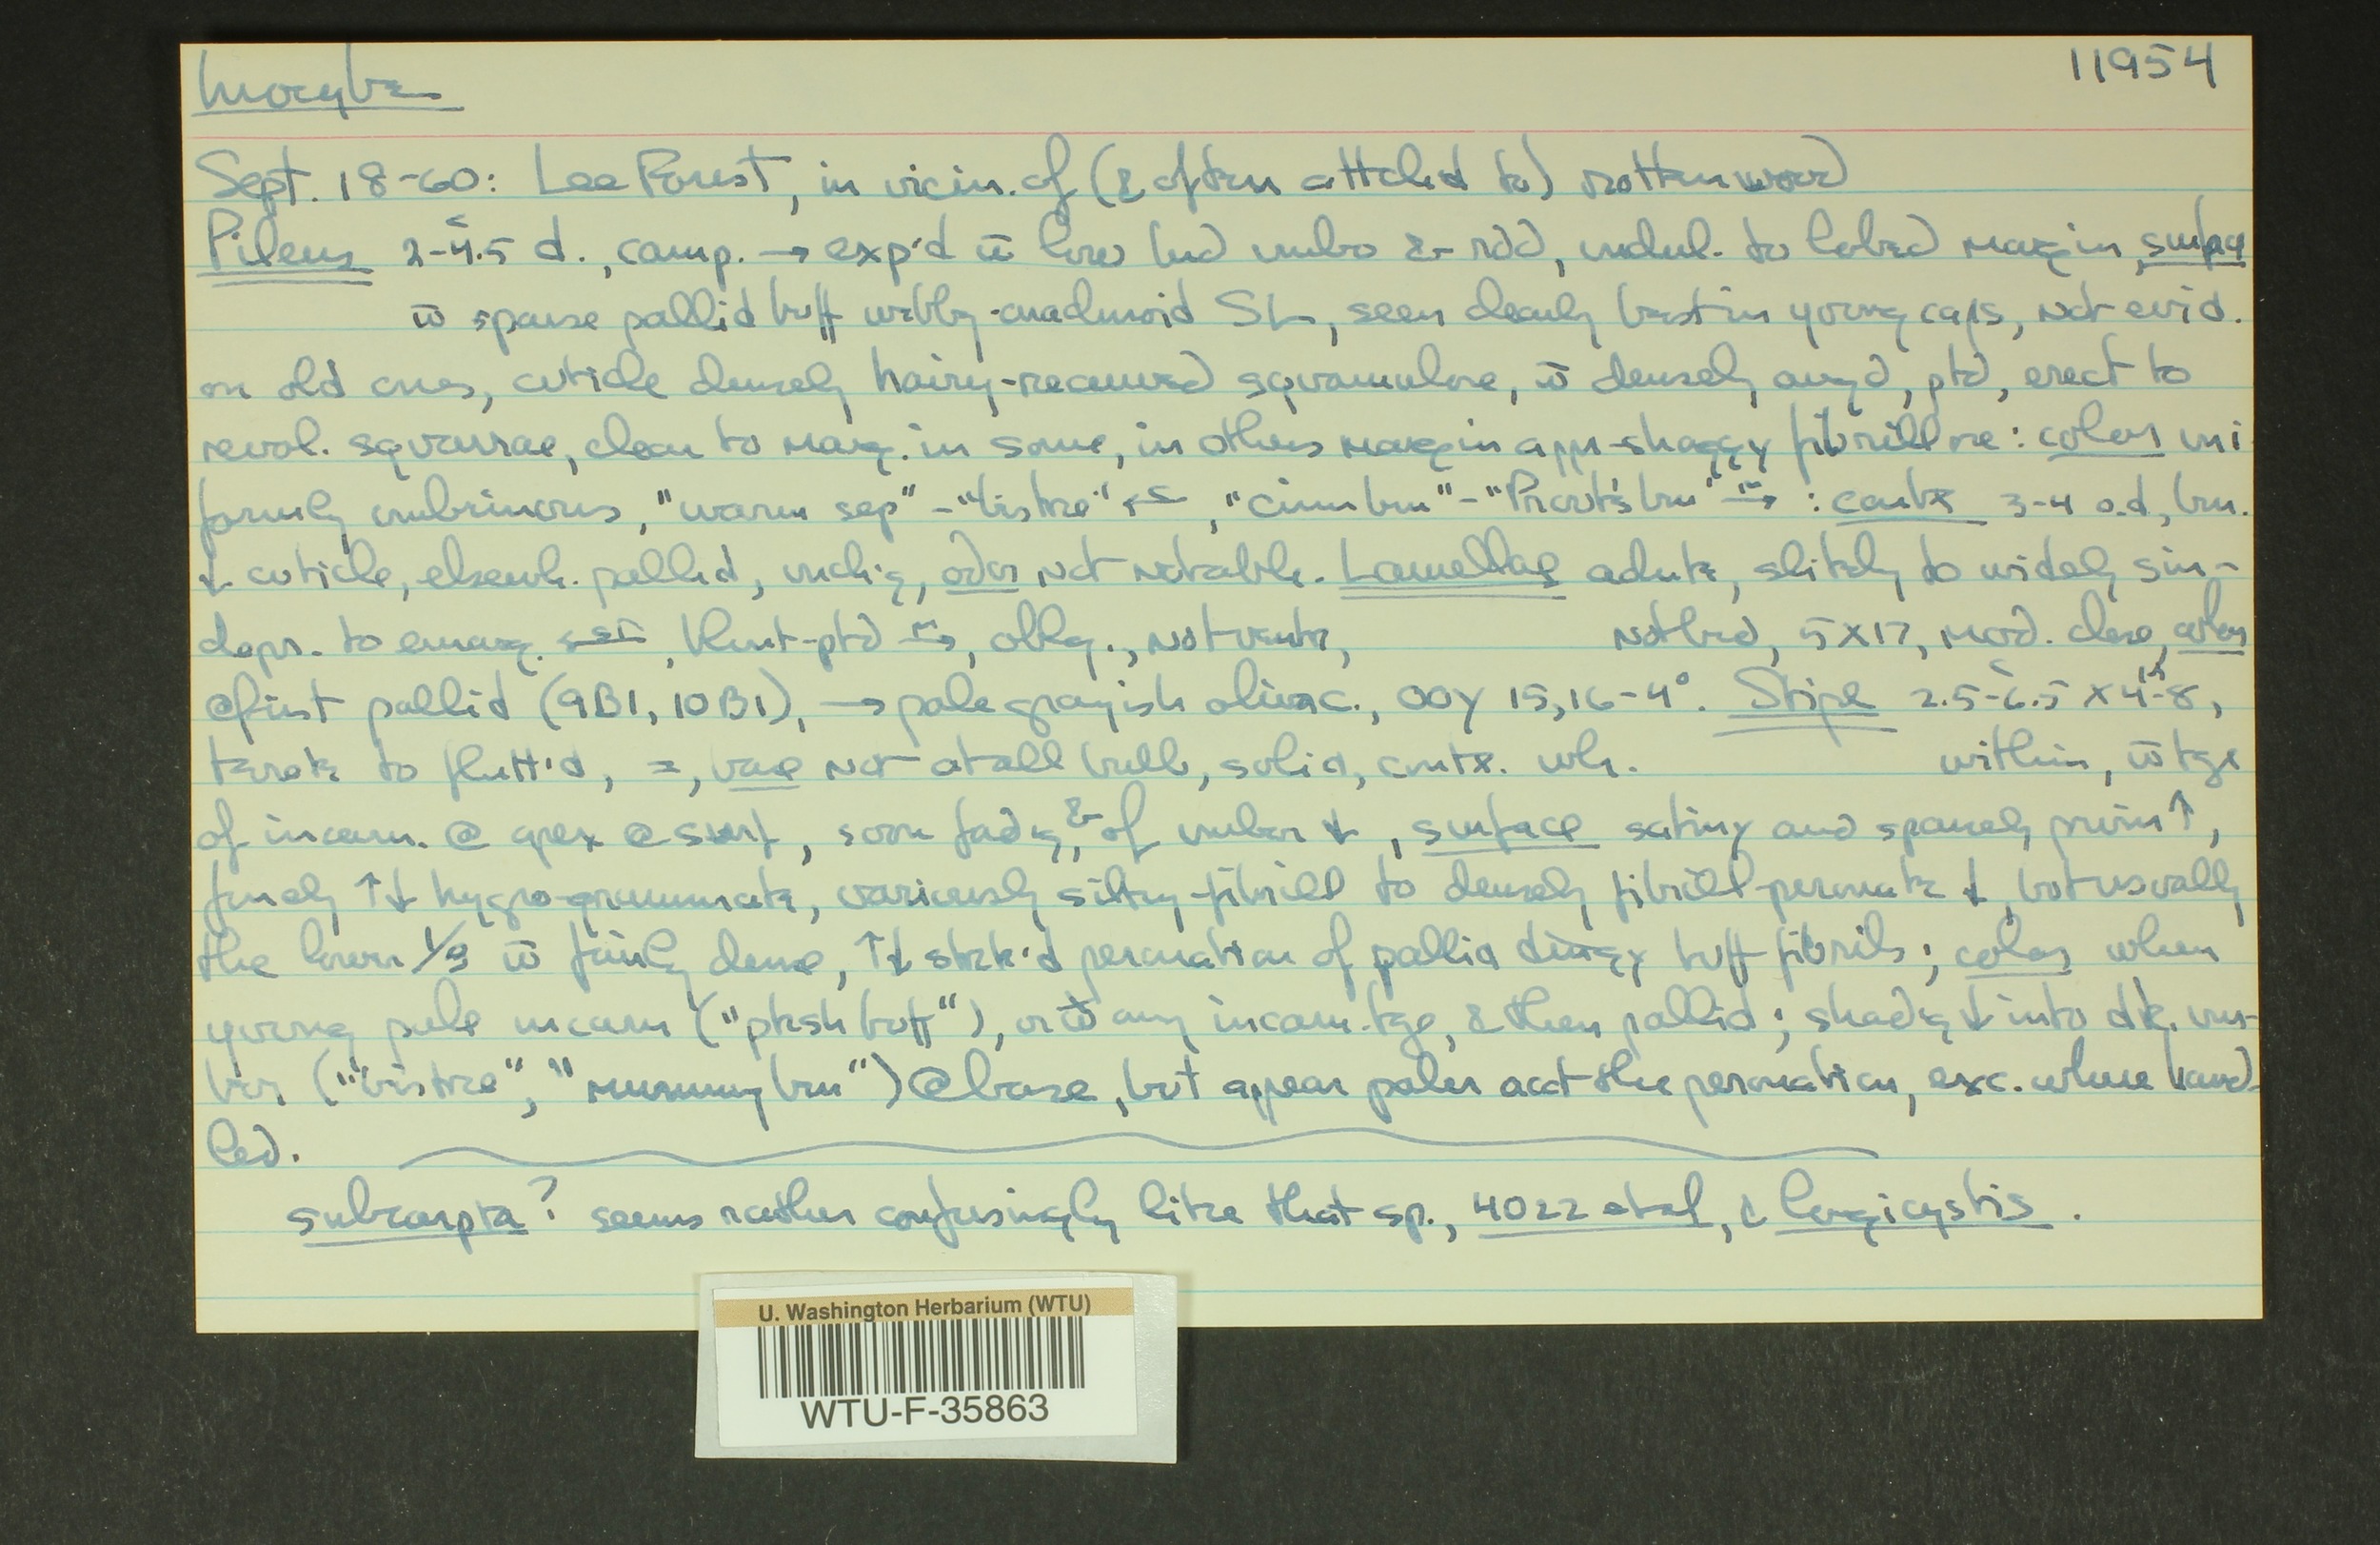 Inocybe 11954
Sept. 18-60: Lee Forest, in vicin. of (& often attch'd to) rotten wood
Pileus 2-4.5 d., camp. → exp'd w̄ low brd umbo & rdd, undul. to lobed margin, surface
w̄ sparse pallid buff webby-arachnoid SL, seen clearly best in young caps, not evid.
on old ones, cuticle densely hairy-recurved squamulose, w̄ densely arrg'd, ptd, erect to
revol. squarrae, clear to marg. in some, in others margin appr-shaggy fibrillose: color uni
formly umbrinous, "warm sep" - "bistre", "cinn brn" - "Prout's brn" : contx 3-4 o.d, brn.
↓ cuticle, elsewh. pallid, unch'g, odor not notable. Lamellae adnate, slitely to widely sin-
depr. to emarg., blunt-ptd, oblq., not ventr, not brd, 5x17, mod. close, color
@ first pallid (9B1, 10B1), → pale grayish olivac., OOY 15,16-4°. Stipe 2.5-6.5 x 4-8,
terete to flatt'd, =, base not at all bulb, solid, cntx. wh. within, w̄ tge
of incarn. @ apex @ surf, soon fad'g, & of umber ↓, surface satiny and sparsely pruin ↑,
finely ↑↓ hygro-grammate, variously silky-fibrill to densely fibrill-peronate ↓, but usually
the lower 1/3 w̄ fairly dense, ↑↓ strk'd peronation of pallid dingy buff fibrils; color when
young pale incarn ("pksh buff"), or w̄ any incarn. tge, & then pallid; shad'g ↓ into dk. um-
ber ("bistre", "mummy brn") @ base, but appear paler acct the peronation, exc. where hand-
led.
subcarpta? seems rather confusingly like that sp., 4022 et al, & longicystis.
U. Washington Herbarium (WTU)
WTU-F-35863